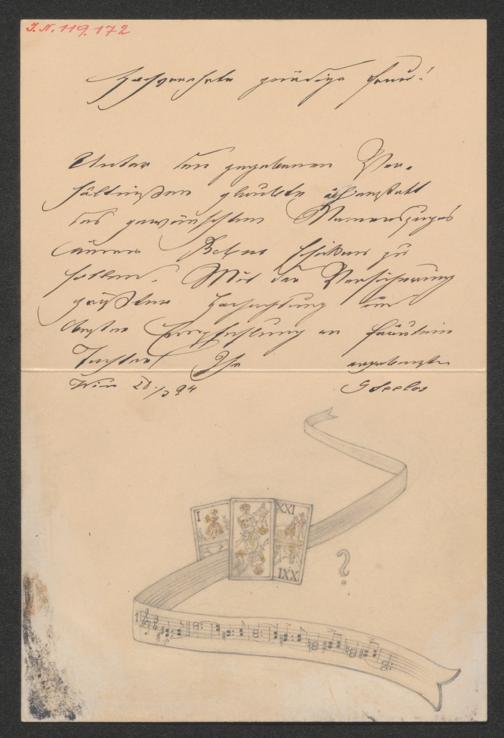 I.N. 119,172
Hochverehrte gnädige Frau!
Unter den gegebenen Ver-
hältnißen glaubte ich anstatt
des gewünschten
zu
sollen. Mit der Versicherung
größter Hochachtung und
besten Empfehlung an Fräulein
Tochter Ihr ergebenster
Wien 28./3 94
I XXI
XXI
?